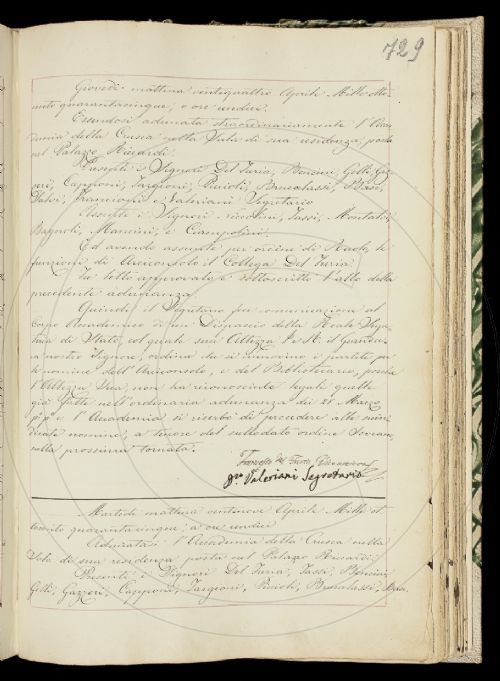 729
Giovedì mattina ventiquattro Aprile Mille otto
cento quarantacinque; a ore undici.
Essendosi adunata straordinariamente l'Acca
demia della Crusca nella Sala di sua residenza, posta
nel Palazzo Riccardi.
Presenti i Signori Del Furia, Bencini, Gelli, Gaz
zeri, Capponi, Targioni, Puioti, Brucalassi, Basi,
Salvi, Francioni e Valeriani Segretario
Assenti i Signori Niccolini, Tassi, Montalvi,
Bagnoli, Mannini, e Ciampolini.
Ed avendo assunte per ordine di Ruolo, le
funzioni di Arciconsolo il Collega Del Furia
Fu letto approvato e sottoscritto l'atto della
precedente adunanza.
Quindi il Segretario fece comunicazione al
Corpo Accademico di un Dispaccio della Reale Segre
teria di Stato, col quale sua Altezza I. e R. il Granduca
nostro Signore, ordina che si rinnovino i partiti per
le nomine dell'Arciconsolo, e del Bibliotecario, poiché
l'Altezza Sua, non ha riconosciute legali quelle
già fatte nell'ordinaria adunanza dei 21 Marzo
p.p. e l'Accademia si riserbò di procedere alle indi
cate nomine, a tenore del sullodato ordine Sovrano
nella prossima tornata.
Francesco del Furia
Valeriani Segretario
Martedì mattina ventinove Aprile Mille ot
tocento quarantacinque; a ore undici
Adunata l'Accademia della Crusca nella
Sala di sua residenza posta nel Palazzo Riccardi,
Presenti i Signori Del Furia, Tassi, Bencini
Gelli, Gazzeri, Capponi, Targioni, Puioti, Brucalassi,